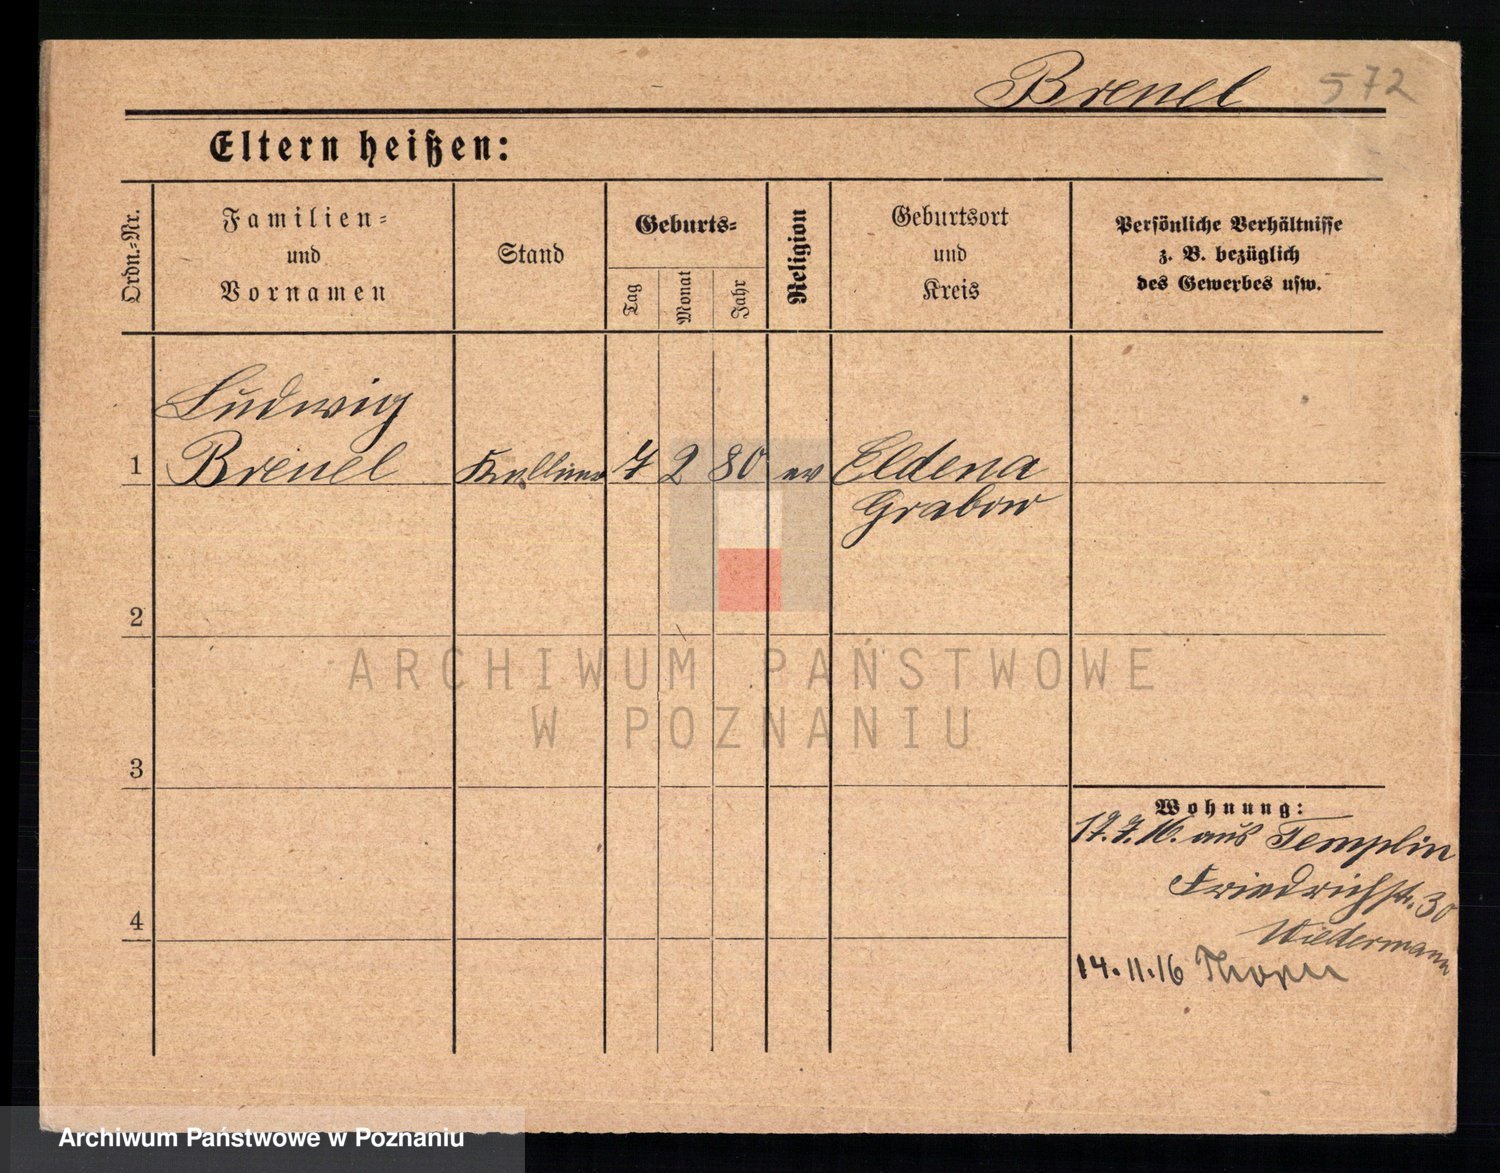 Brenel 572
Eltern heißen:
Ordn.-Nr.
Familien-
und
Vornamen
Stand
Geburts-
Tag
Monat
Jahr
Religion
Geburtsort
und
Kreis
Persönliche Verhältnisse
z. B. bezüglich
des Gewerbes usw.
Ludwig
1 Brenel Kellner 7 2 80 ev Eldena
Grabow
2
3
Wohnung:
17.7.16. aus Templin
Friedrichstr. 30
Wiedermann
4
14.11.16 Thorn
ARCHIWUM PAŃSTWOWE
W POZNANIU
Archiwum Państwowe w Poznaniu